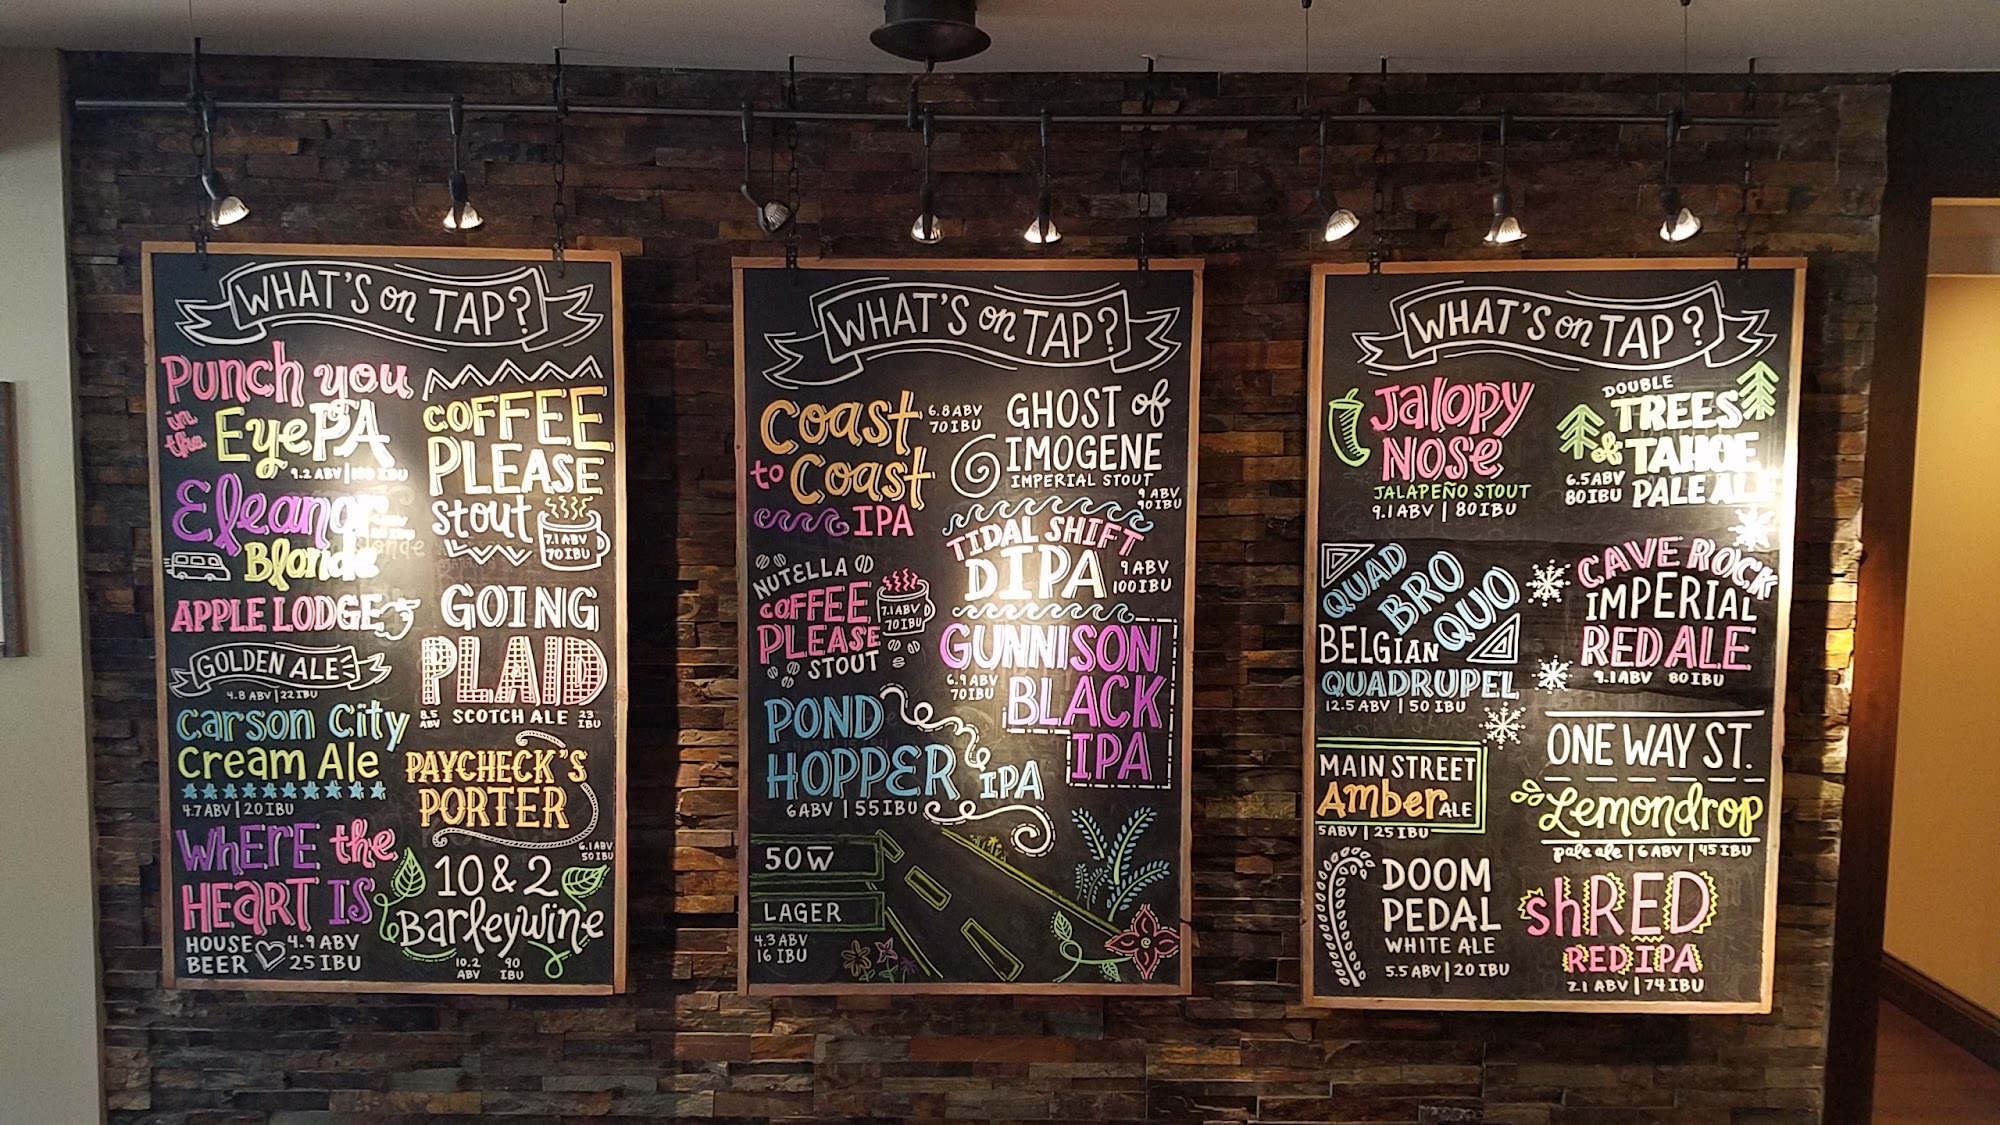 WHAT'S on TAP?
Punch you
in the EyePA
9.2 ABV | 100 IBU
Eleanor
Blonde
APPLE LODGE
GOLDEN ALE
4.8 ABV | 22 IBU
Carson City
Cream Ale
4.7 ABV | 20 IBU
WHERE the
HEART IS
HOUSE BEER
4.9 ABV
25 IBU
COFFEE
PLEASE
stout
7.1 ABV
70 IBU
GOING
PLAID
8.5 ABV
SCOTCH ALE
23 IBU
PAYCHECK'S
PORTER
6.1 ABV
50 IBU
10 & 2
Barleywine
10.2 ABV
90 IBU
WHAT'S on TAP?
Coast
to Coast
IPA
6.8 ABV
70 IBU
NUTELLA
COFFEE
PLEASE
STOUT
7.1 ABV
70 IBU
POND
HOPPER IPA
6 ABV | 55 IBU
50W
LAGER
4.3 ABV
16 IBU
GHOST of
IMOGENE
IMPERIAL STOUT
9 ABV
90 IBU
TIDAL SHIFT
DIPA
9 ABV
100 IBU
GUNNISON
BLACK
IPA
6.9 ABV
70 IBU
WHAT'S on TAP?
Jalopy
NOSE
JALAPEÑO STOUT
9.1 ABV | 80 IBU
QUAD
BRO
QUO
BELGIAN
QUADRUPEL
12.5 ABV | 50 IBU
MAIN STREET
Amber ALE
5 ABV | 25 IBU
DOOM
PEDAL
WHITE ALE
5.5 ABV | 20 IBU
DOUBLE
TREES
of TAHOE
PALE ALE
6.5 ABV
80 IBU
CAVE ROCK
IMPERIAL
RED ALE
9.1 ABV 80 IBU
ONE WAY ST.
Lemondrop
pale ale | 6 ABV | 45 IBU
shRED
RED IPA
7.1 ABV | 74 IBU